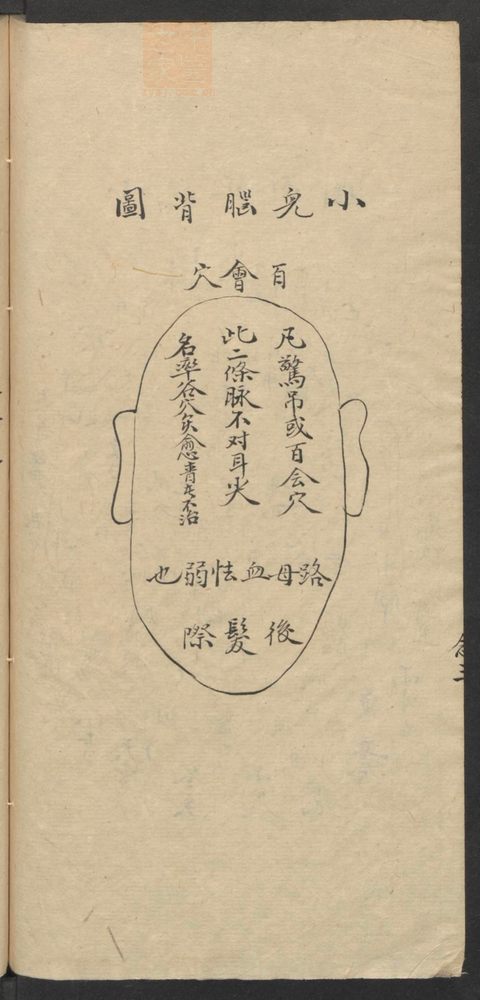 小兒腦背圖
百會穴
凡驚吊或百会穴
此二條脉不对耳尖
名率谷穴灸愈青色不治
路母血怯弱也
後髮際